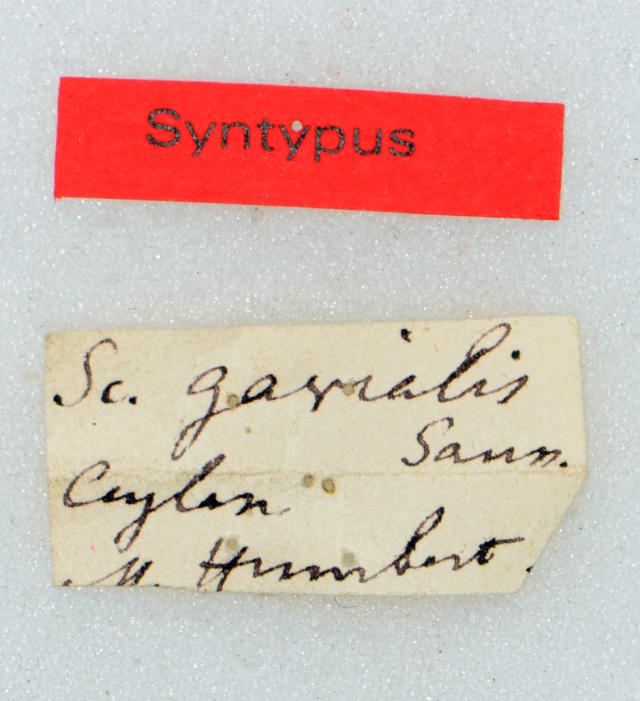 Syntypus
Sc. gavialis
Sauss.
Ceylan
M. Humbert.